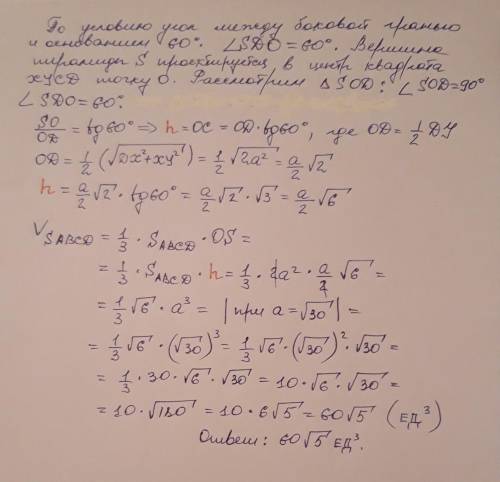 По условию угол между боковой гранью
и основанием 60°. ∠SDO = 60°. Вершина
пирамиды S проектируется в центр квадрата
XYCD точку O. Рассмотрим △SOD: ∠SOD=90°
∠SDO=60°:
SO/OD = tg60° ⇒ h = OC = OD·tg60°, где OD = 1/2 DY
OD = 1/2 (√(DX²+XY²)) = 1/2 √(2a²) = a/2 √2
h = a/2 √2 · tg60° = a/2 √2 · √3 = a/2 √6
V SABCD = 1/3 · S ABCD · OS =
= 1/3 · S ABCD · h = 1/3 · 2a² · a/2 √6 =
= 1/3 √6 · a³ = | при a = √30 | =
= 1/3 √6 · (√30)³ = 1/3 √6 · (√30)² · √30 =
= 1/3 · 30 · √6 · √30 = 10 · √6 · √30 =
= 10 · √180 = 10 · 6√5 = 60√5 (ед³)
Ответ: 60√5 ед³.